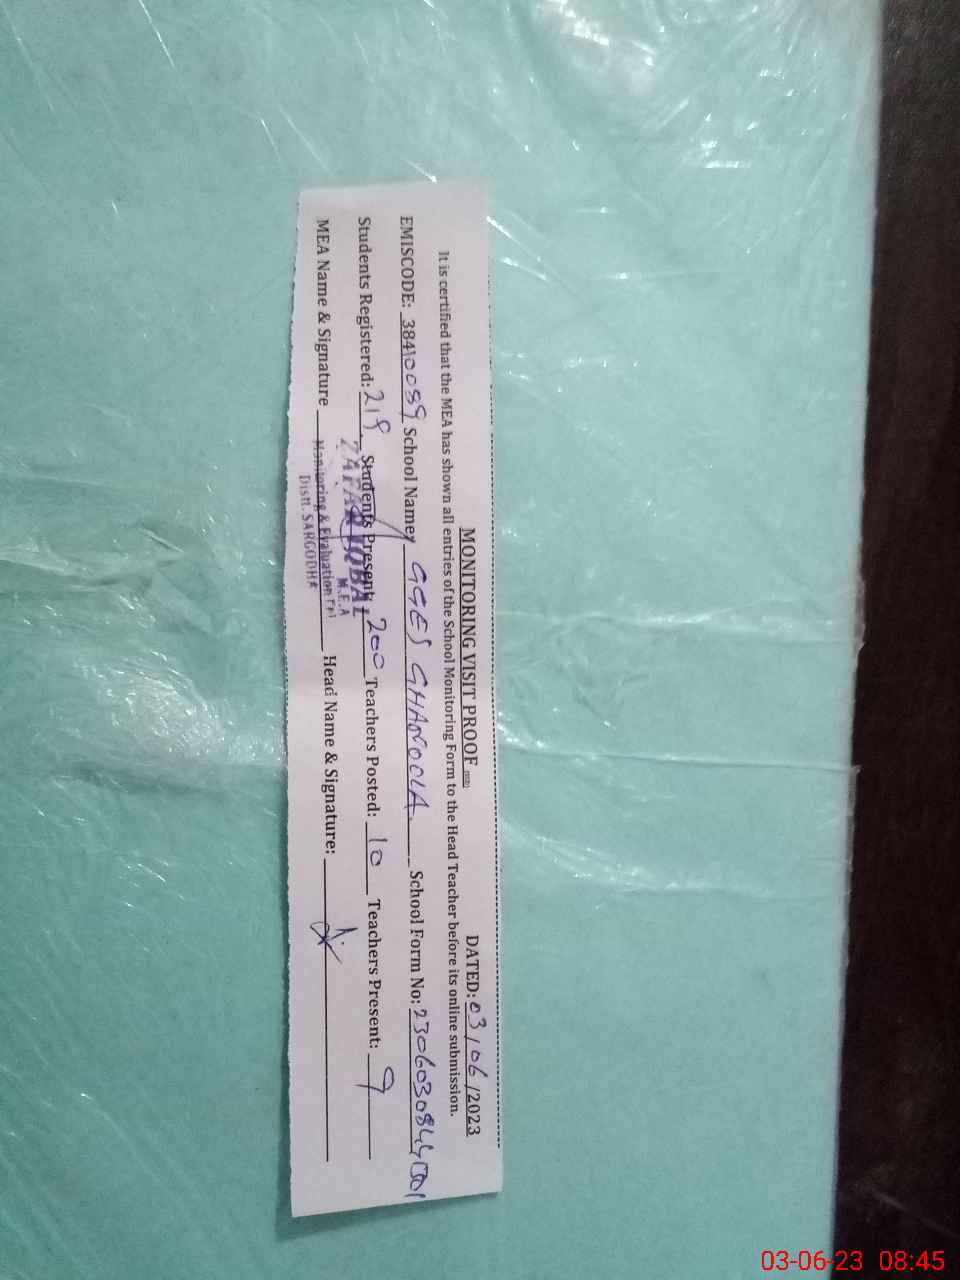 MONITORING VISIT PROOF DATED: 03/06/2023
It is certified that the MEA has shown all entries of the School Monitoring Form to the Head Teacher before its online submission.
EMISCODE: 38410089 School Name: GGES GHANOCLA School Form No:
Students Registered: 219 Students Present: 200 Teachers Posted: 10 Teachers Present: 9
ZAFAR IQBAL
M.E.A
MEA Name & Signature Head Name & Signature:
Monitoring & Evaluation
Distt. SARGODHA
03-06-23 08:45